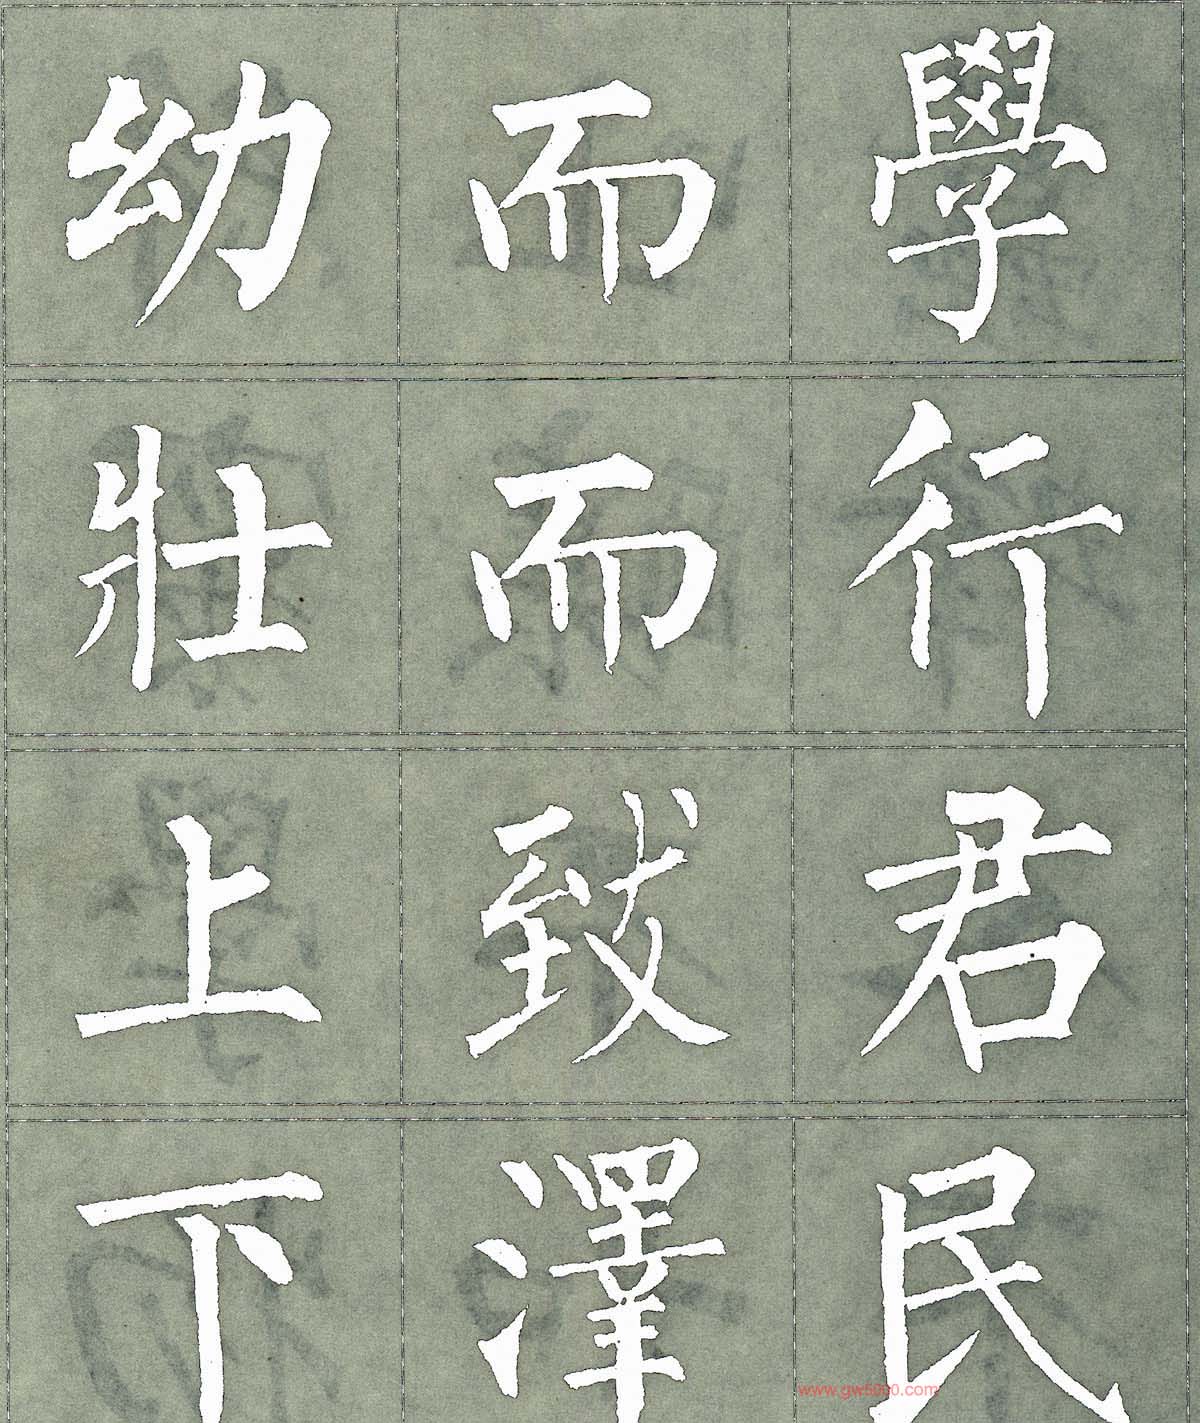 幼而學
壯而行
上致君
下澤民
www.gw5000.com